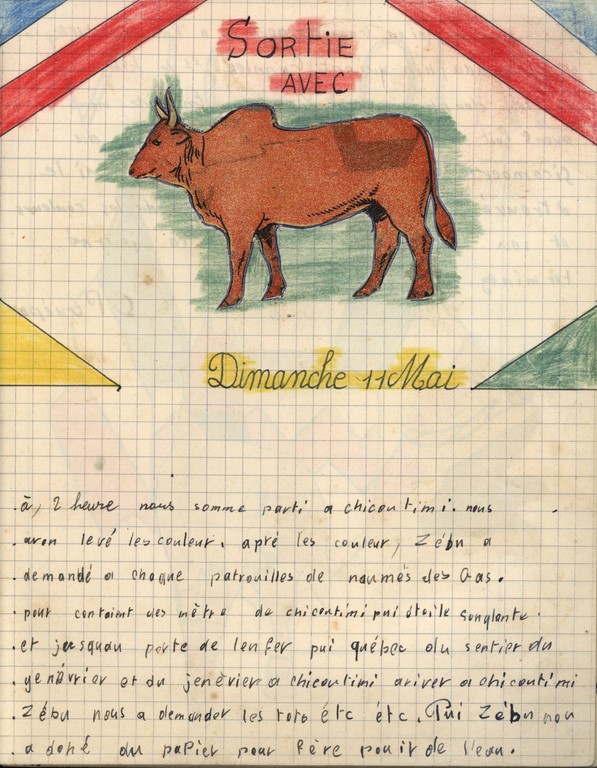 SORTIE
AVEC
Dimanche 11 Mai
à, 2 heure nous somme parti a chicoutimi. nous
avon levé les couleur. apré les couleur, Zébu a
demandé a chaque patrouilles de naumés des Gas.
pour containt des mètre de chicoutimi pui étoile Sanglante.
et jusquau porte de lenfer pui québec du sentier du
genévrier et du jenèvrier a chicoutimi ariver a chicoutimi
Zébu nous a demander les toto étc étc. Pui Zébu nou
a doné du papier pour fère de l'eau.